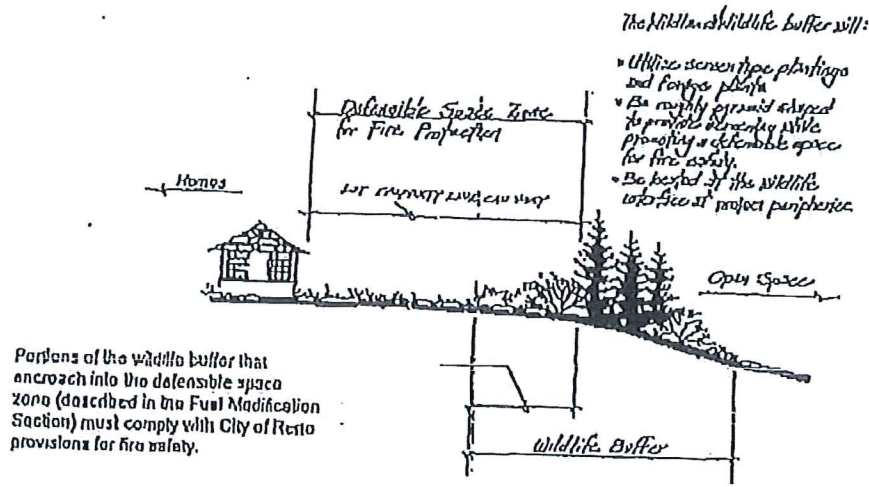 The Wildland Wildlife buffer will:
• Utilize screen type plantings
and forage plants
• Be roughly pyramid shaped
to provide screening while
promoting a defensible space
for fire safety.
• Be located at the wildlife
interface at project peripheries.
Defensible Space Zone
for Fire Protection
Homes
Open Space
Portions of the wildlife buffer that
encroach into the defensible space
zone (described in the Fuel Modification
Section) must comply with City of Reno
provisions for fire safety.
Wildlife Buffer